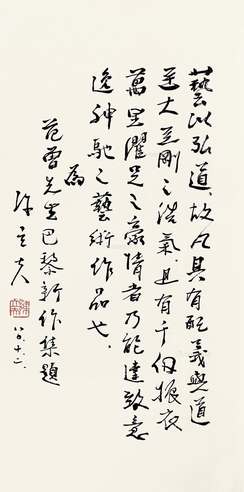 藝以弘道，故凡具有配義與道
至大至剛之浩氣，且有千仞振衣
萬里濯足之豪情者乃能達致意
逸神馳之藝術作品也。
為
范曾先生巴黎新作集題